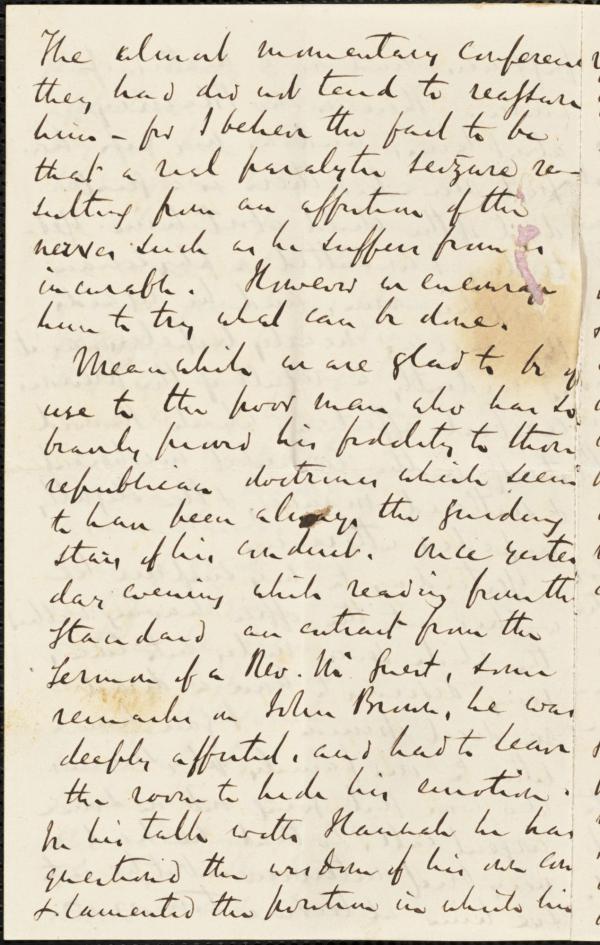 The almost momentary conferenc
they had did not tend to reassure
him - for I believe the fact to be
that a real paralytic seizure re-
sulting from an affection of the
nerves such as he suffers from is
incurable. However we encourage
him to try what can be done.
Meanwhile we are glad to be of
use to the poor man who has so
bravely proved his fidelity to those
republican doctrines which seem
to have been always the guiding
stars of his conduct. Once yester
day evening while reading from the
Standard an extract from the
Sermon of a Rev. Mr Guest, some
remarks on John Brown, he was
deeply affected, and had to leave
the room to hide his emotion.
In his talk with Hannah he has
questioned the wisdom of his own con
& lamented the position in which his